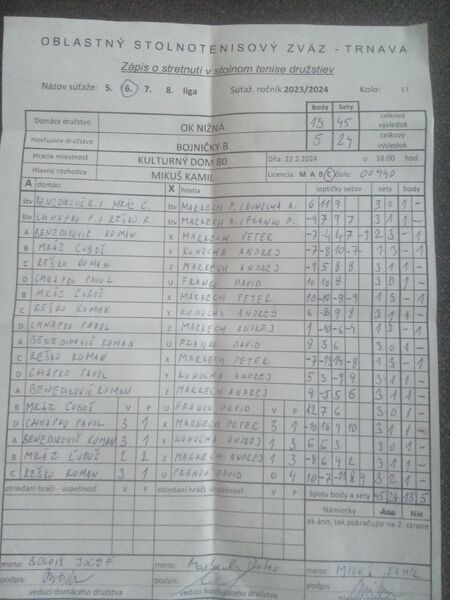 OBLASTNÝ STOLNOTENISOVÝ ZVÄZ - TRNAVA
Zápis o stretnutí v stolnom tenise družstiev
Názov súťaže: 5. 6. 7. 8. liga Súťaž. ročník 2023/2024 Kolo: 17
Body Sety
Domáce družstvo OK NIŽNÁ 13 45 celkový výsledok
Hosťujúce družstvo BOJNIČKY B 5 24 celkový výsledok
Hracia miestnosť KULTÚRNY DOM 80 Dňa: 22.2.2024 o 18:00 hod.
Hlavný rozhodca MIKUŠ KAMIL Licencia: M A B C číslo: 00440
A domáci X hostia loptičky setov sety body
štv BENEDIKOVIČ R. MRÁZ Ľ. štv MARKECH P. KUNOCHA A. 6 11 9 3 0 1 -
štv CHNAPKO P. REŠKO R. štv MARKECH A. FRANKO D. -9 7 9 7 3 1 1 -
A BENEDIKOVIČ ROMAN X MARKECH PETER -7 -4 4 7 -9 2 3 - 1
B MRÁZ ĽUBOŠ Y KUNOCHA ANDREJ -7 -8 10 -7 1 3 - 1
C REŠKO ROMAN Z MARKECH ANDREJ 3 1 1 -
D CHNAPKO PAVOL U FRANKO DAVID 10 10 8 3 0 1 -
B MRÁZ ĽUBOŠ X MARKECH PETER 1 3 - 1
C REŠKO ROMAN Y KUNOCHA ANDREJ 3 1 1 -
D CHNAPKO PAVOL Z MARKECH ANDREJ 1 3 - 1
A BENEDIKOVIČ ROMAN U FRANKO DAVID 8 3 6 3 0 1 -
C REŠKO ROMAN X MARKECH PETER 1 3 - 1
D CHNAPKO PAVOL Y KUNOCHA ANDREJ 5 3 -9 9 3 1 1 -
A BENEDIKOVIČ ROMAN Z MARKECH ANDREJ 9 -5 5 6 3 1 1 -
B MRÁZ ĽUBOŠ V P U FRANKO DAVID V P 12 7 6 3 0 1 -
D CHNAPKO PAVOL 3 1 X MARKECH PETER 3 1 3 1 1 -
A BENEDIKOVIČ ROMAN 3 1 Y KUNOCHA ANDREJ 1 3 6 6 3 3 0 1 -
B MRÁZ ĽUBOŠ 2 2 Z MARKECH ANDREJ 1 3 -8 6 9 2 3 1 1 -
C REŠKO ROMAN 3 1 U FRANKO DAVID 0 4 3 2 1 -
striedaní hráči - úspešnosť V P striedaní hráči - úspešnosť V P Spolu body a sety 45 24 13 5
Námietky Áno Nie
ak áno, tak pokračujte na 2. strane
meno: meno: meno:
podpis: podpis: podpis:
vedúci domáceho družstva vedúci hosťujúceho družstva hlavný rozhodca